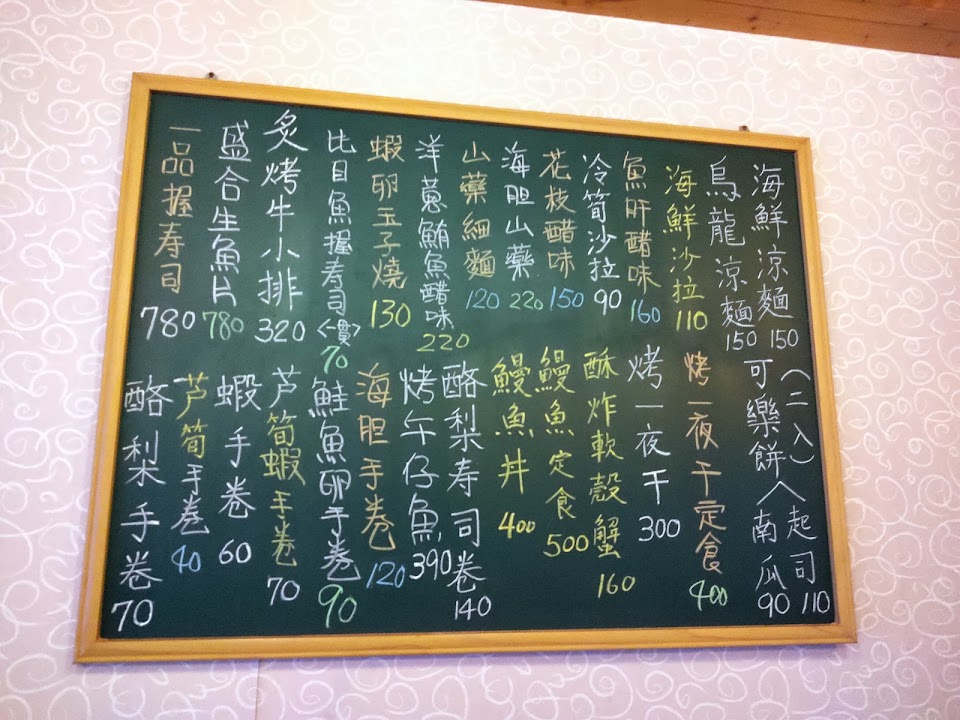 海鮮涼麵 150
烏龍涼麵 150
海鮮沙拉 110
魚肝醋味 160
冷筍沙拉 90
花枝醋味 150
海胆山藥 220
山藥細麵 120
洋蔥鮪魚醋味 220
蝦卵玉子燒 130
比目魚握寿司<一貫> 70
炙烤牛小排 320
盛合生魚片 780
一品握寿司 780
(二入) 起司 110
可樂餅 南瓜 90
烤一夜干定食 400
烤一夜干 300
酥炸軟殼蟹 160
鰻魚定食 500
鰻魚丼 400
酪梨寿司卷 140
烤午仔魚 390
海胆手卷 120
鮭魚卵手卷 90
芦筍蝦手卷 70
蝦手卷 60
芦筍手卷 40
酪梨手卷 70